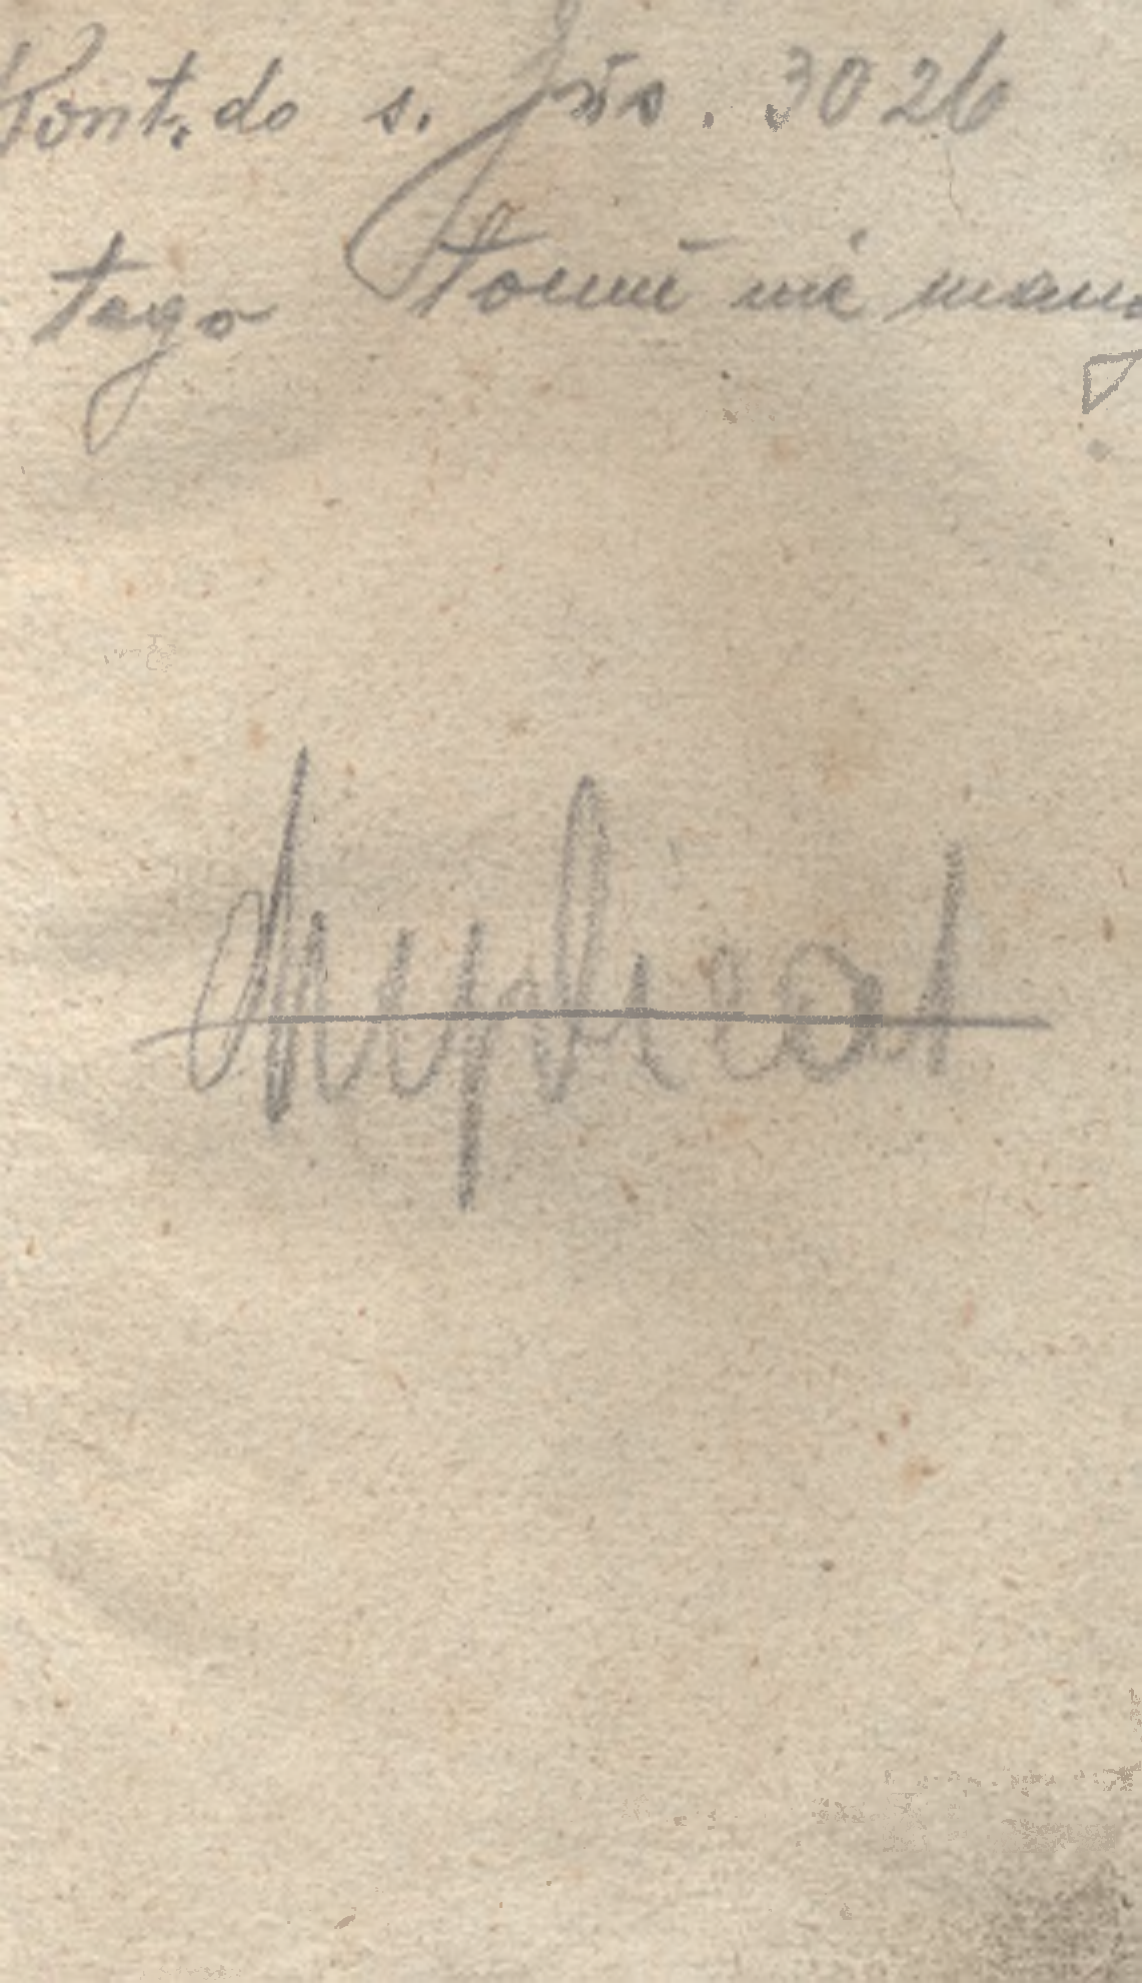 Kont. do s. Jris. 3026
tego Tomu nie mamy
duplicat